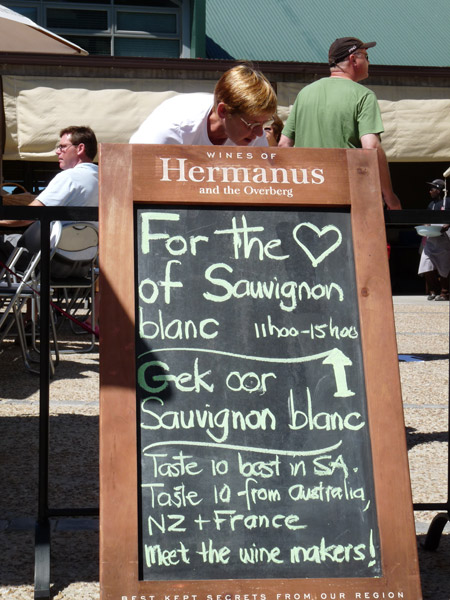 WINES OF
Hermanus
and the Overberg
For the ♡
of Sauvignon
blanc 11h00-15h00
Gek oor
Sauvignon blanc
Taste 10 best in SA.
Taste 10 from Australia,
NZ + France
Meet the wine makers!
BEST KEPT SECRETS FROM OUR REGION